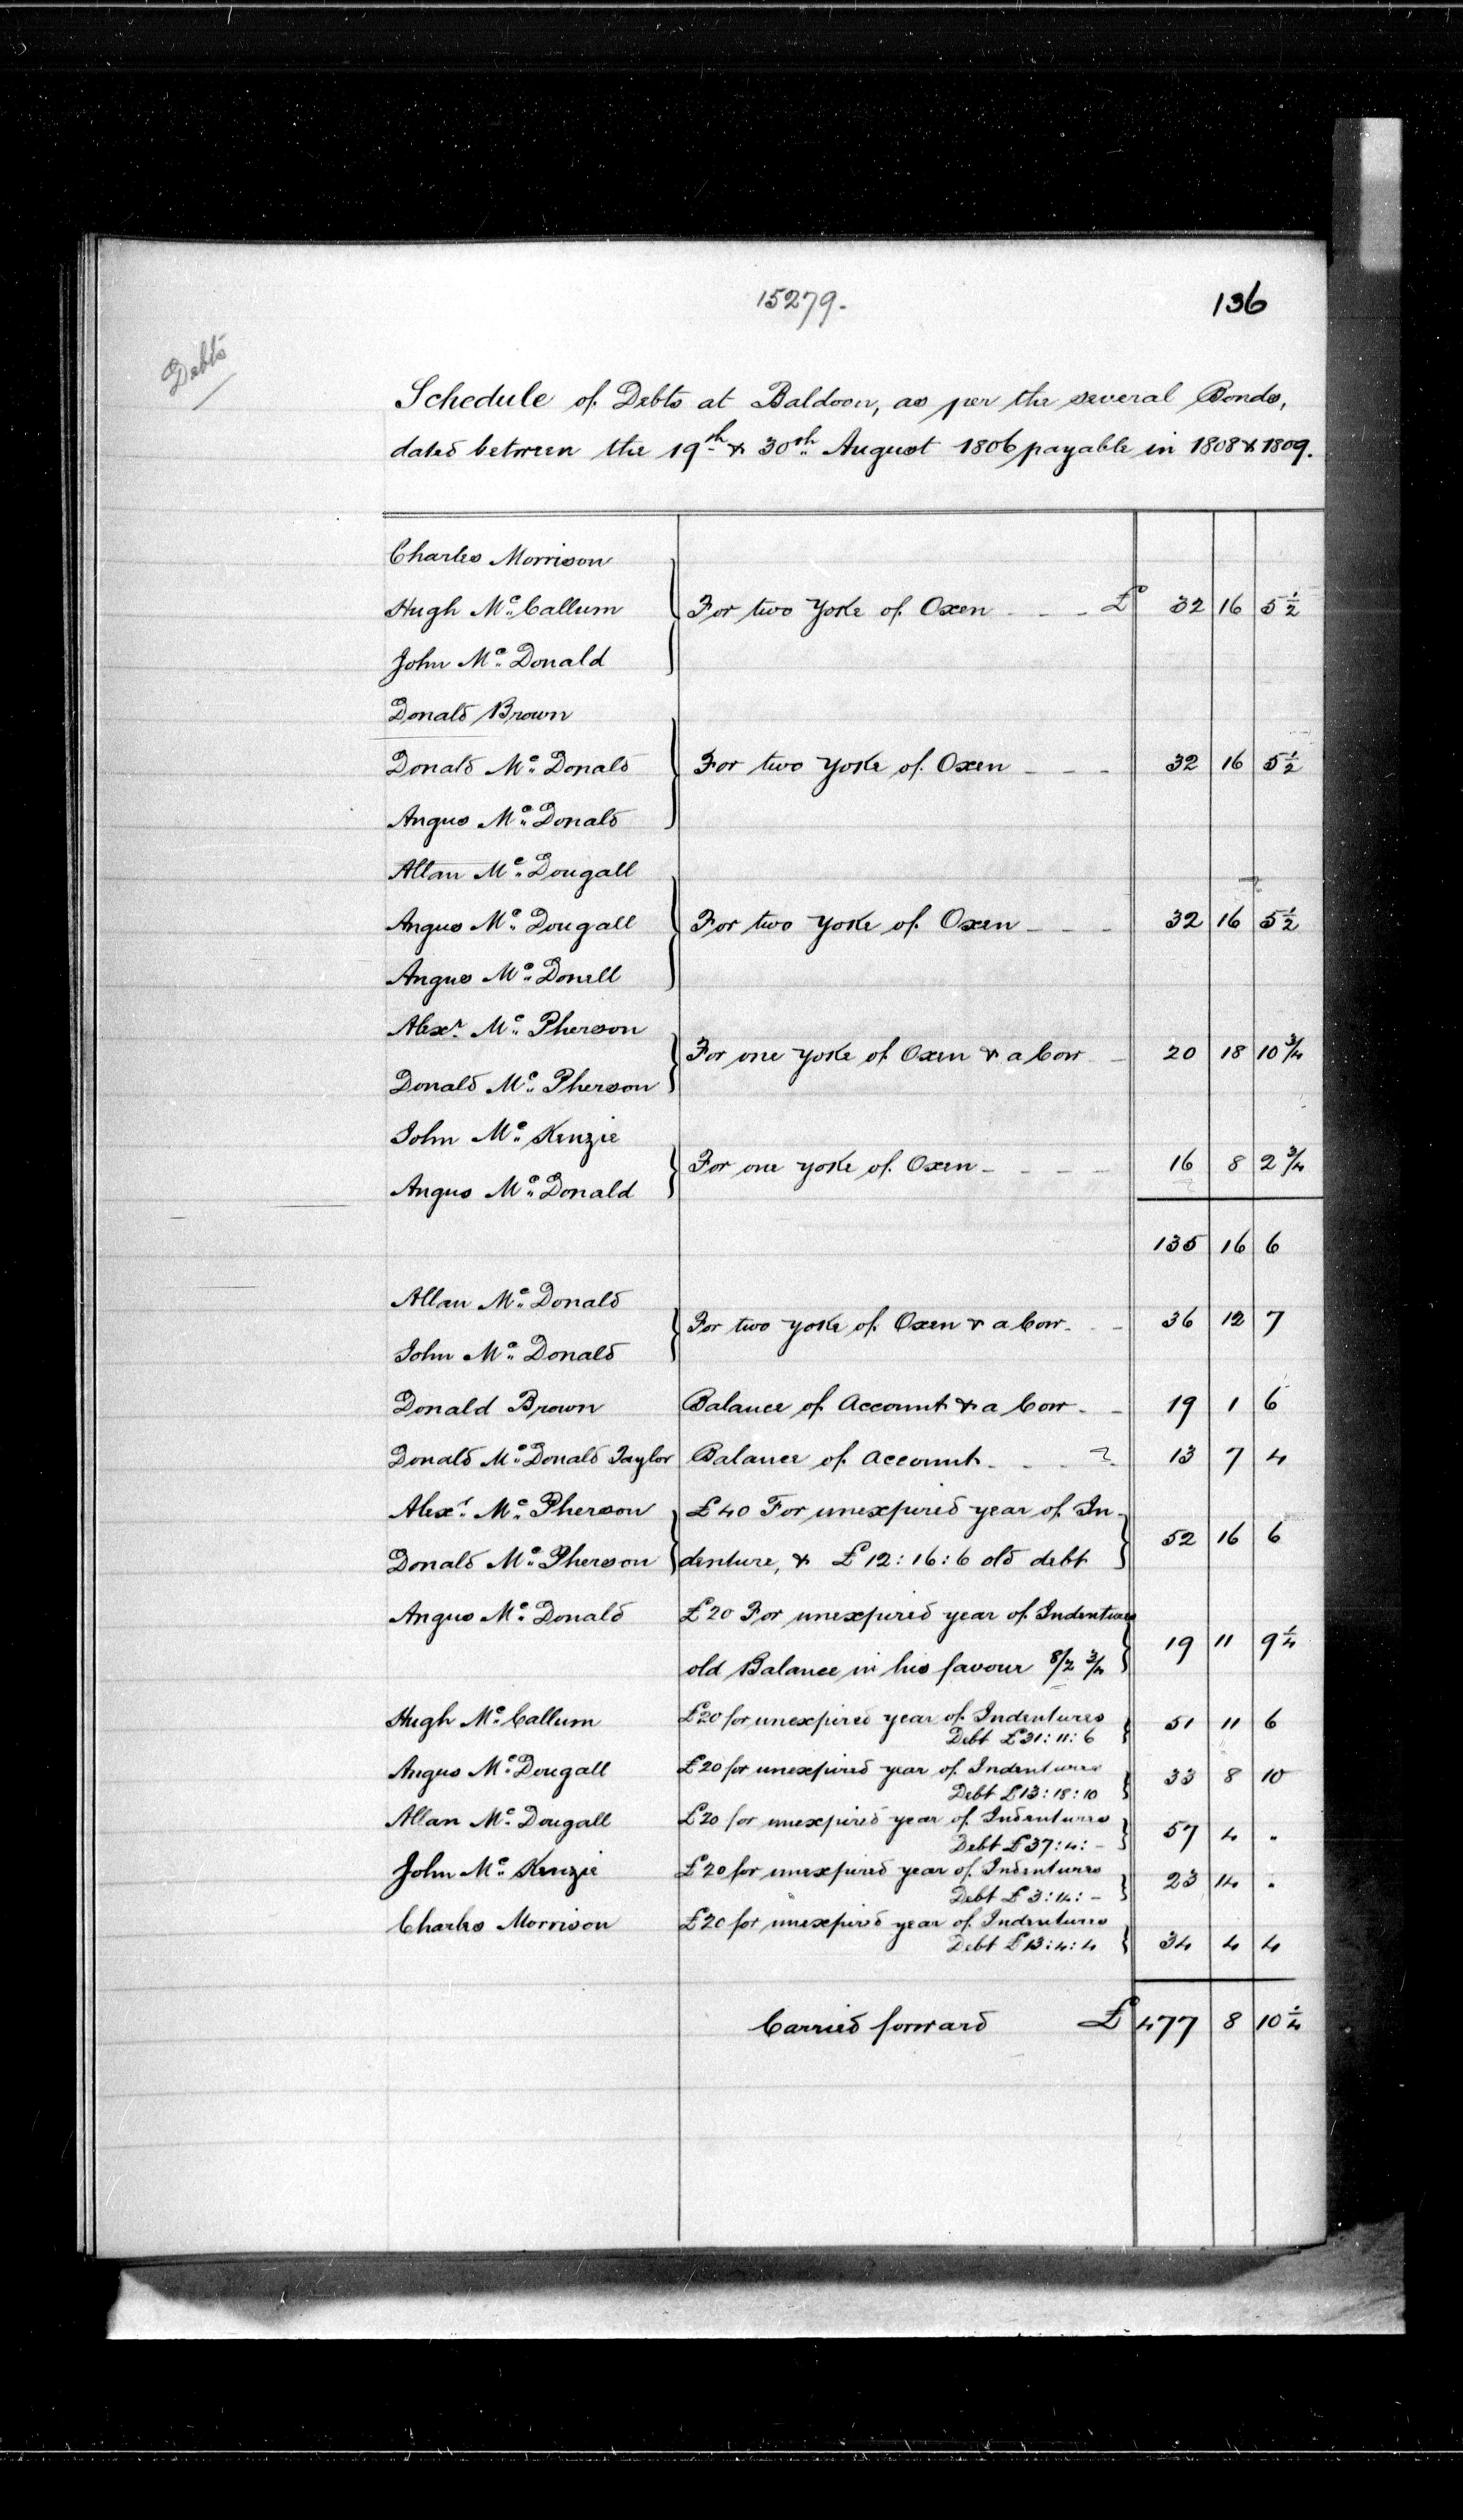 15279.
136
Debts
Schedule of Debts at Baldoon, as per the several Bonds,
dated between the 19th & 30th August 1806 payable in 1808 & 1809.
Charles Morrison
Hugh Mc Callum For two Yoke of Oxen - - - £ 32 16 5 1/2
John Mc Donald
Donald Brown
Donald Mc Donald For two Yoke of Oxen - - - 32 16 5 1/2
Angus Mc Donald
Allan Mc Dougall
Angus Mc Dougall For two Yoke of Oxen - - - 32 16 5 1/2
Angus Mc Donell
Alexr. Mc Pherson
For one Yoke of Oxen & a Cow - - 20 18 10 3/4
Donald Mc Pherson
John Mc Kenzie
For one Yoke of Oxen - - - - 16 8 2 3/4
Angus Mc Donald
135 16 6
Allan Mc Donald
For two Yoke of Oxen & a Cow - - - 36 12 7
John Mc Donald
Donald Brown Balance of Account & a Cow - - 19 1 6
Donald Mc Donald Taylor Balance of Account - - - ? 13 7 4
Alexr. Mc Pherson £40 For unexpired year of In-
52 16 6
Donald Mc Pherson denture, & £12:16:6 old debt
Angus Mc Donald £20 For unexpired year of Indentures
19 11 9 1/4
old Balance in his favour 8/2 3/4
Hugh Mc Callum £20 for unexpired year of Indentures 51 11 6
Debt £31:11:6
Angus Mc Dougall £20 for unexpired year of Indentures 33 8 10
Debt £13:18:10
Allan Mc Dougall £20 for unexpired year of Indentures 57 4 .
Debt £37:4:-
John Mc Kenzie £20 for unexpired year of Indentures 23 14 .
Debt £3:14:-
Charles Morrison £20 for unexpired year of Indentures
Debt £13:4:4 34 4 4
Carried forward £ 477 8 10 1/4